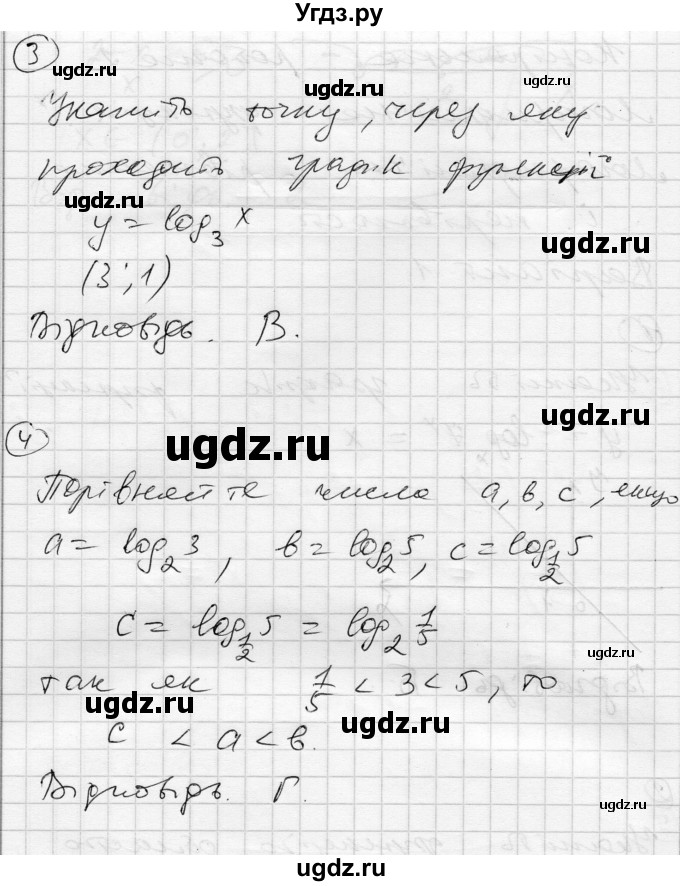 Угдз.ру
3
Укажіть точку, через яку
проходить графік функції
y = log₃ x
(3; 1)
Відповідь. В.
4
Порівняйте числа a, b, c, якщо
a = log₂ 3, b = log₂ 5, c = log_{1/2} 5
c = log_{1/2} 5 = log₂ 1/5
так як 1/5 < 3 < 5, то
c < a < b.
Відповідь. Г.
ugdz.ru
ugdz.ru
ugdz.ru
ugdz.ru
ugdz.ru
ugdz.ru
ugdz.ru
ugdz.ru
ugdz.ru
ugdz.ru
ugdz.ru
ugdz.ru
ugdz.ru